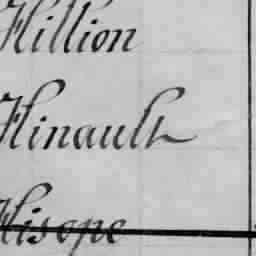 Hillion
Hinault
Hisope